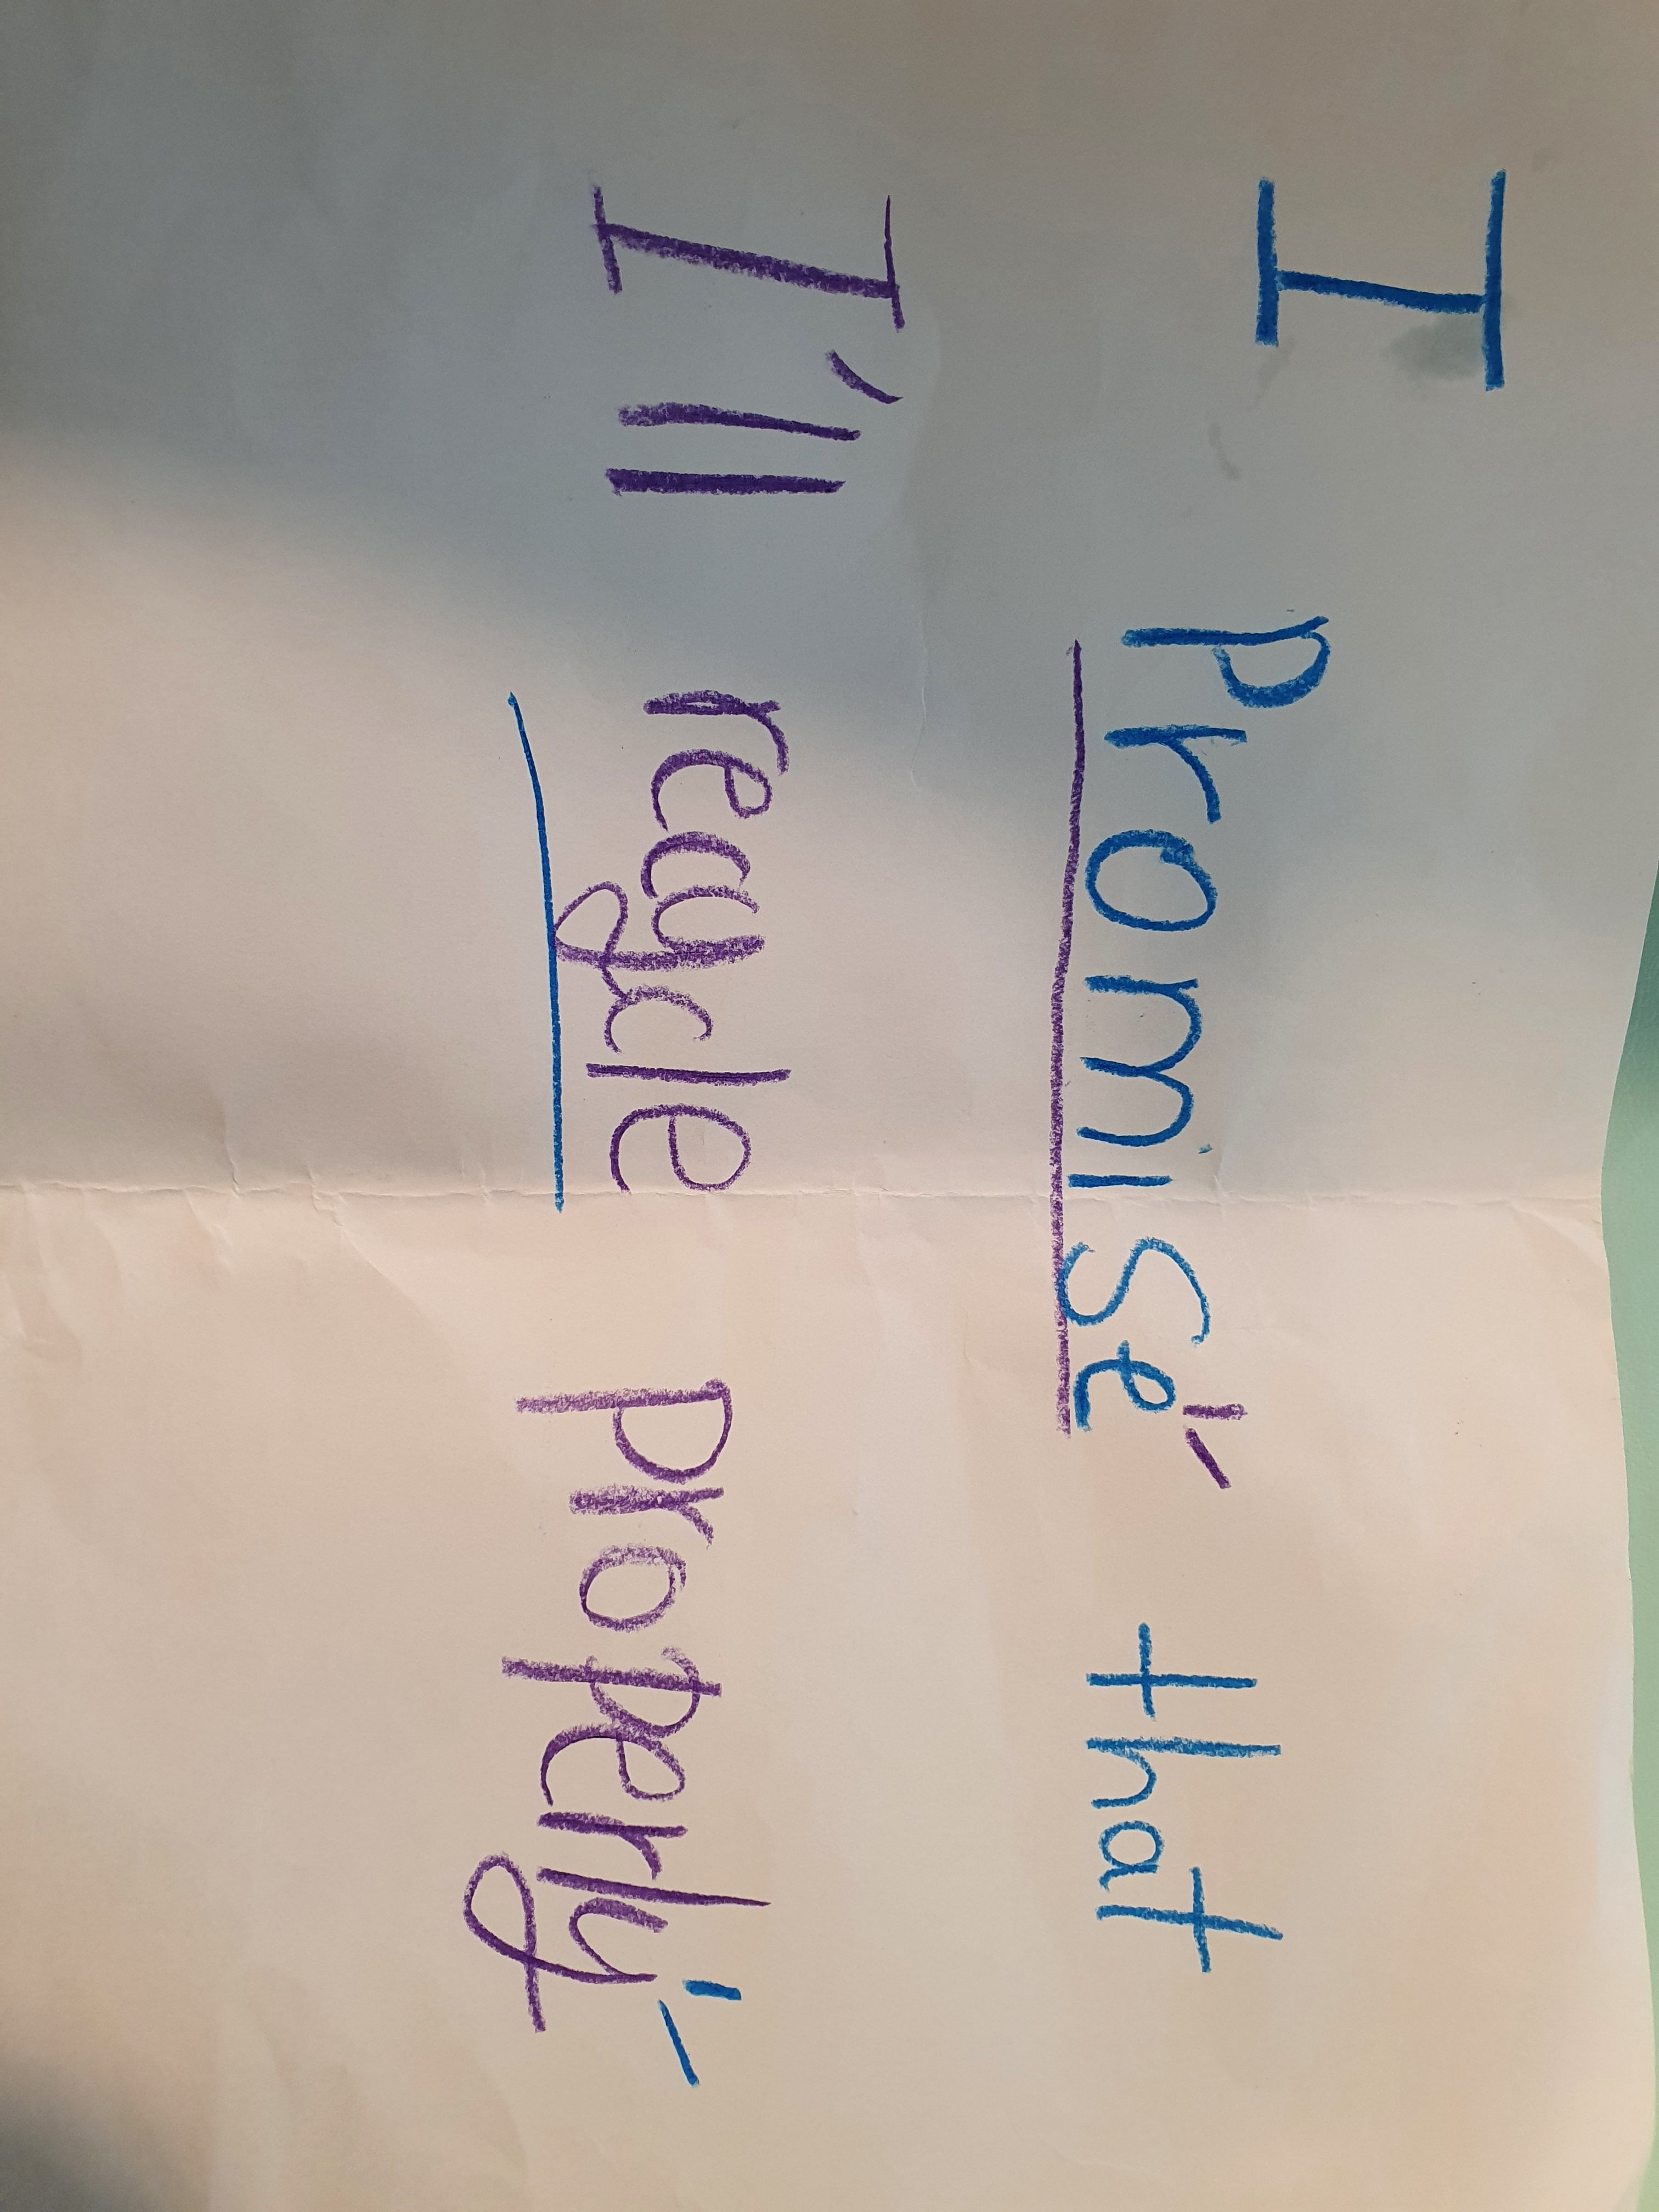 I promise that
I'll recycle properly